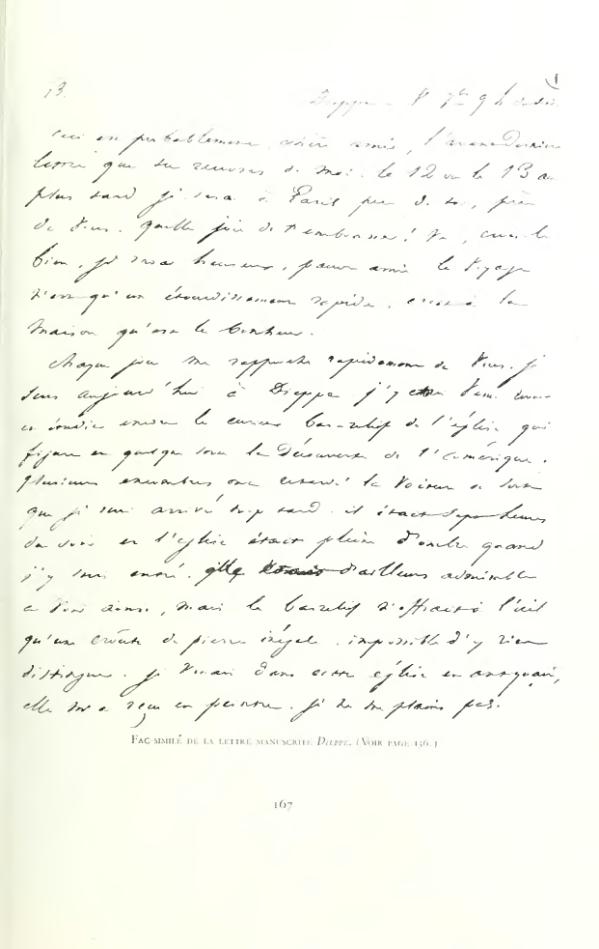 13.
1
Dieppe — 8 7bre 9 h. du soir
Ceci est probablement, chère amie, l'avant-dernière
lettre que tu recevras de moi. le 12 ou le 13 au
plus tard je serai à Paris près de toi, près
de vous. quelle joie de t'embrasser! Va, crois-le
bien, je serai heureux, pauvre amie. le voyage
n'est qu'un étourdissement rapide, c'est à la
maison qu'est le bonheur.
Chaque jour me rapproche rapidement de vous. je
suis aujourd'hui à Dieppe j'y venu
et étudier encore le curieux bas-relief de l'église qui
figure en quelque sorte la découverte de l'Amérique.
plusieurs encombres ont retardé la voiture de sorte
que je suis arrivé trop tard. il était sept heures
du soir et l'église était pleine d'ombre quand
j'y suis entré. elle était d'ailleurs admirable
à voir ainsi, mais le bas-relief n'offrait à l'œil
qu'une croûte de pierre inégale. impossible d'y rien
distinguer. je venais dans cette église en antiquaire,
elle m'a reçu en peintre. je ne me plains pas.
FAC-SIMILÉ DE LA LETTRE MANUSCRITE DIEPPE. (VOIR PAGE 136.)
167